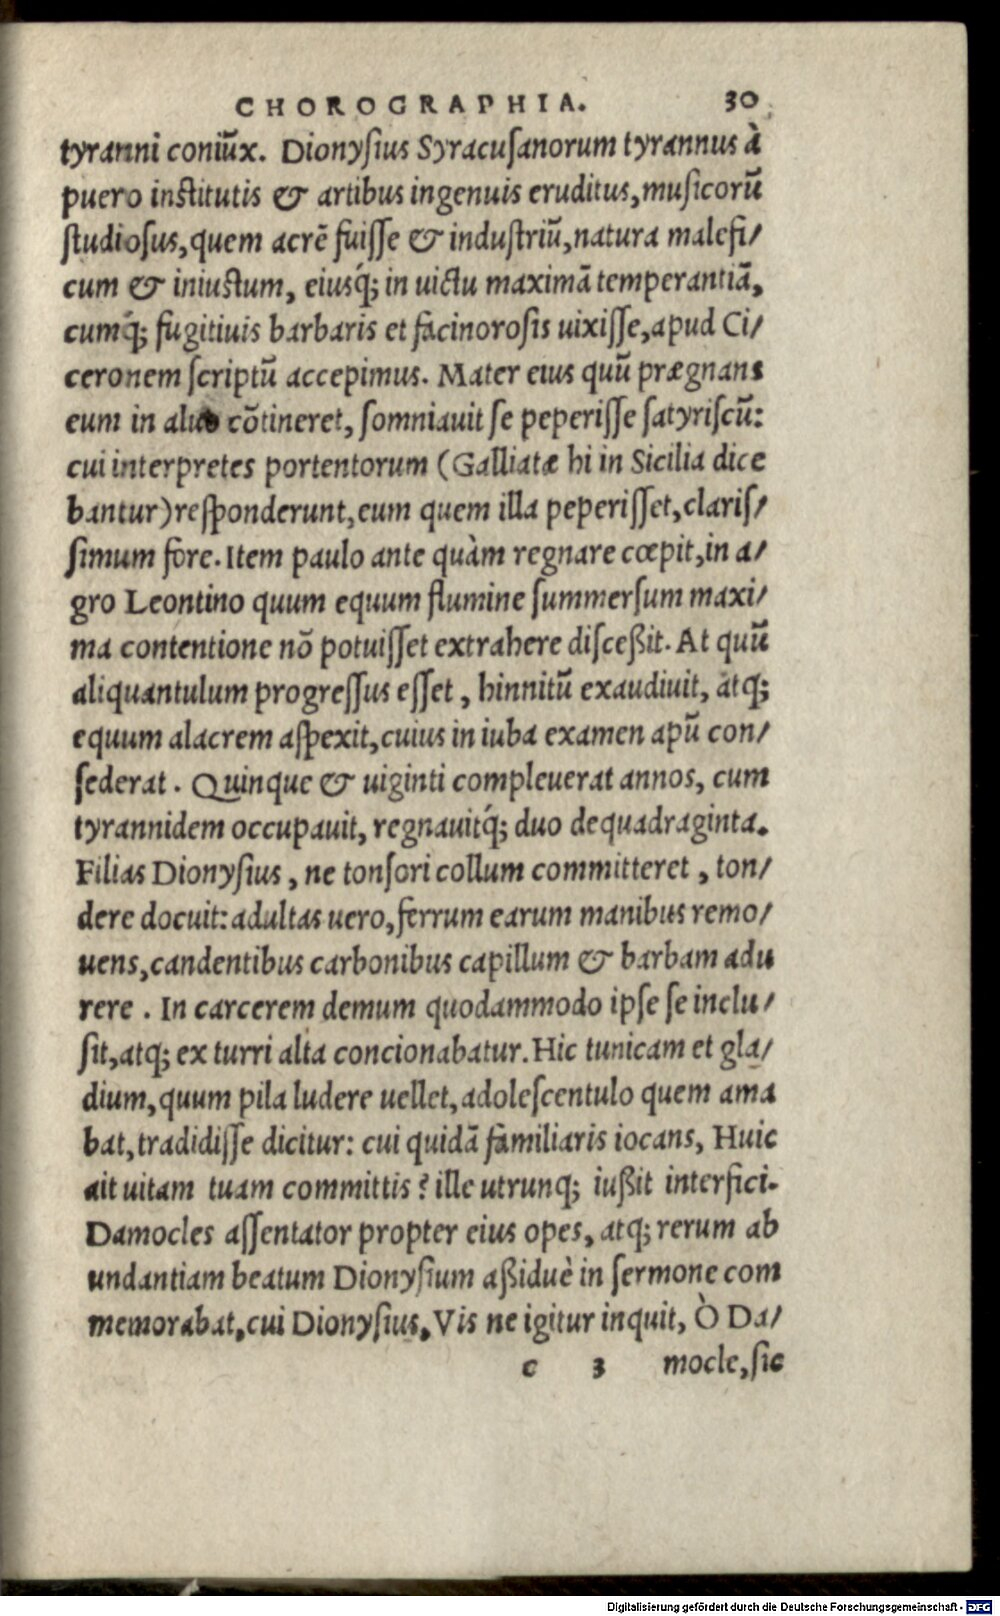 CHOROGRAPHIA. 30
tyranni coniũx. Dionyſius Syracuſanorum tyrannus à
puero inſtitutis & artibus ingenuis eruditus, muſicorũ
ſtudioſus, quem acrẽ fuiſſe & induſtriũ, natura malefi/
cum & iniuſtum, eiusq́; in uictu maximã temperantiã,
cumq́; fugitiuis barbaris et facinoroſis uixiſſe, apud Ci/
ceronem ſcriptũ accepimus. Mater eius quũ prægnans
eum in aluo cõtineret, ſomniauit ſe peperiſſe ſatyriſcũ:
cui interpretes portentorum (Galliatæ hi in Sicilia dice
bantur) reſponderunt, eum quem illa peperiſſet, clariſ/
ſimum fore. Item paulo ante quàm regnare cœpit, in a/
gro Leontino quum equum flumine ſummerſum maxi/
ma contentione nõ potuiſſet extrahere diſceßit. At quũ
aliquantulum progreſſus eſſet, hinnitũ exaudiuit, atq;
equum alacrem aſpexit, cuius in iuba examen apũ con/
ſederat. Quinque & uiginti compleuerat annos, cum
tyrannidem occupauit, regnauitq́; duo de quadraginta.
Filias Dionyſius, ne tonſori collum committeret, ton/
dere docuit: adultas uero, ferrum earum manibus remo/
uens, candentibus carbonibus capillum & barbam adu
rere. In carcerem demum quodammodo ipſe ſe inclu/
ſit, atq; ex turri alta concionabatur. Hic tunicam et gla/
dium, quum pila ludere uellet, adoleſcentulo quem ama
bat, tradidiſſe dicitur: cui quidã familiaris iocans, Huic
ait uitam tuam committis? ille utrunq; iußit interfici.
Damocles aſſentator propter eius opes, atq; rerum ab
undantiam beatum Dionyſium aßiduè in ſermone com
memorabat, cui Dionyſius, Vis ne igitur inquit, Ò Da/
c 3 mocle, ſic
Digitalisierung gefördert durch die Deutsche Forschungsgemeinschaft - DFG